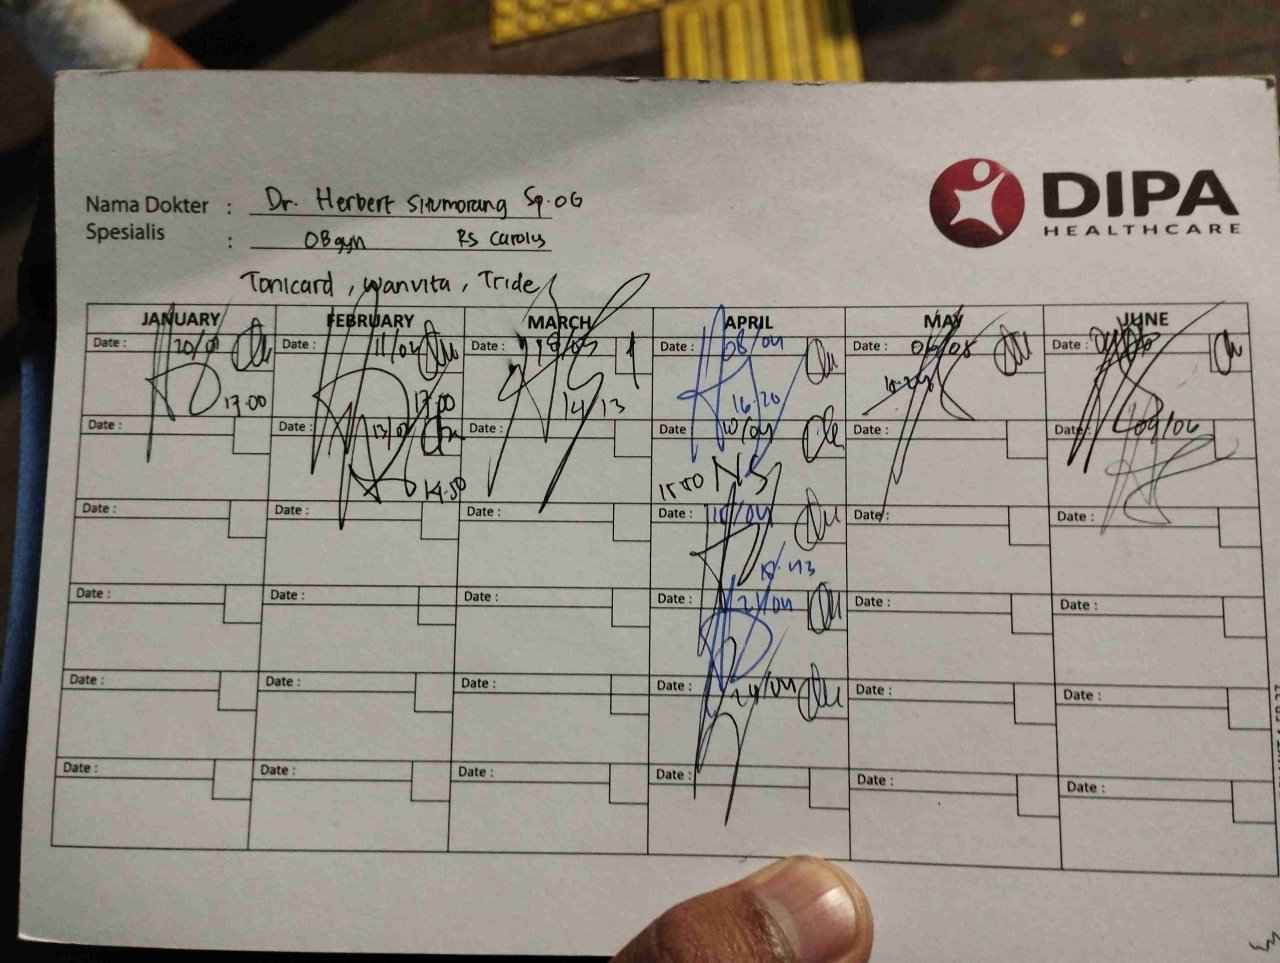 DIPA
HEALTHCARE
Nama Dokter : Dr. Herbert Situmorang Sp.OG
Spesialis : OBgyn RS Carolus
Tonicard, Wanvita, Tride
JANUARY FEBRUARY MARCH APRIL MAY JUNE
Date : 20/01 Date : 11/02 Date : 18/03 Date : 08/04 Date : 06/05 Date :
17.00 17.00 14.13 16.20
Date : Date : 13/02 Date : Date 10/04 Date : Date : 09/06
14.50 15.50
Date : Date : Date : Date : 15/04 Date : Date :
18.43
Date : Date : Date : Date : 21/04 Date : Date :
Date : Date : Date : Date : 24/04 Date : Date :
Date : Date : Date : Date : Date : Date :